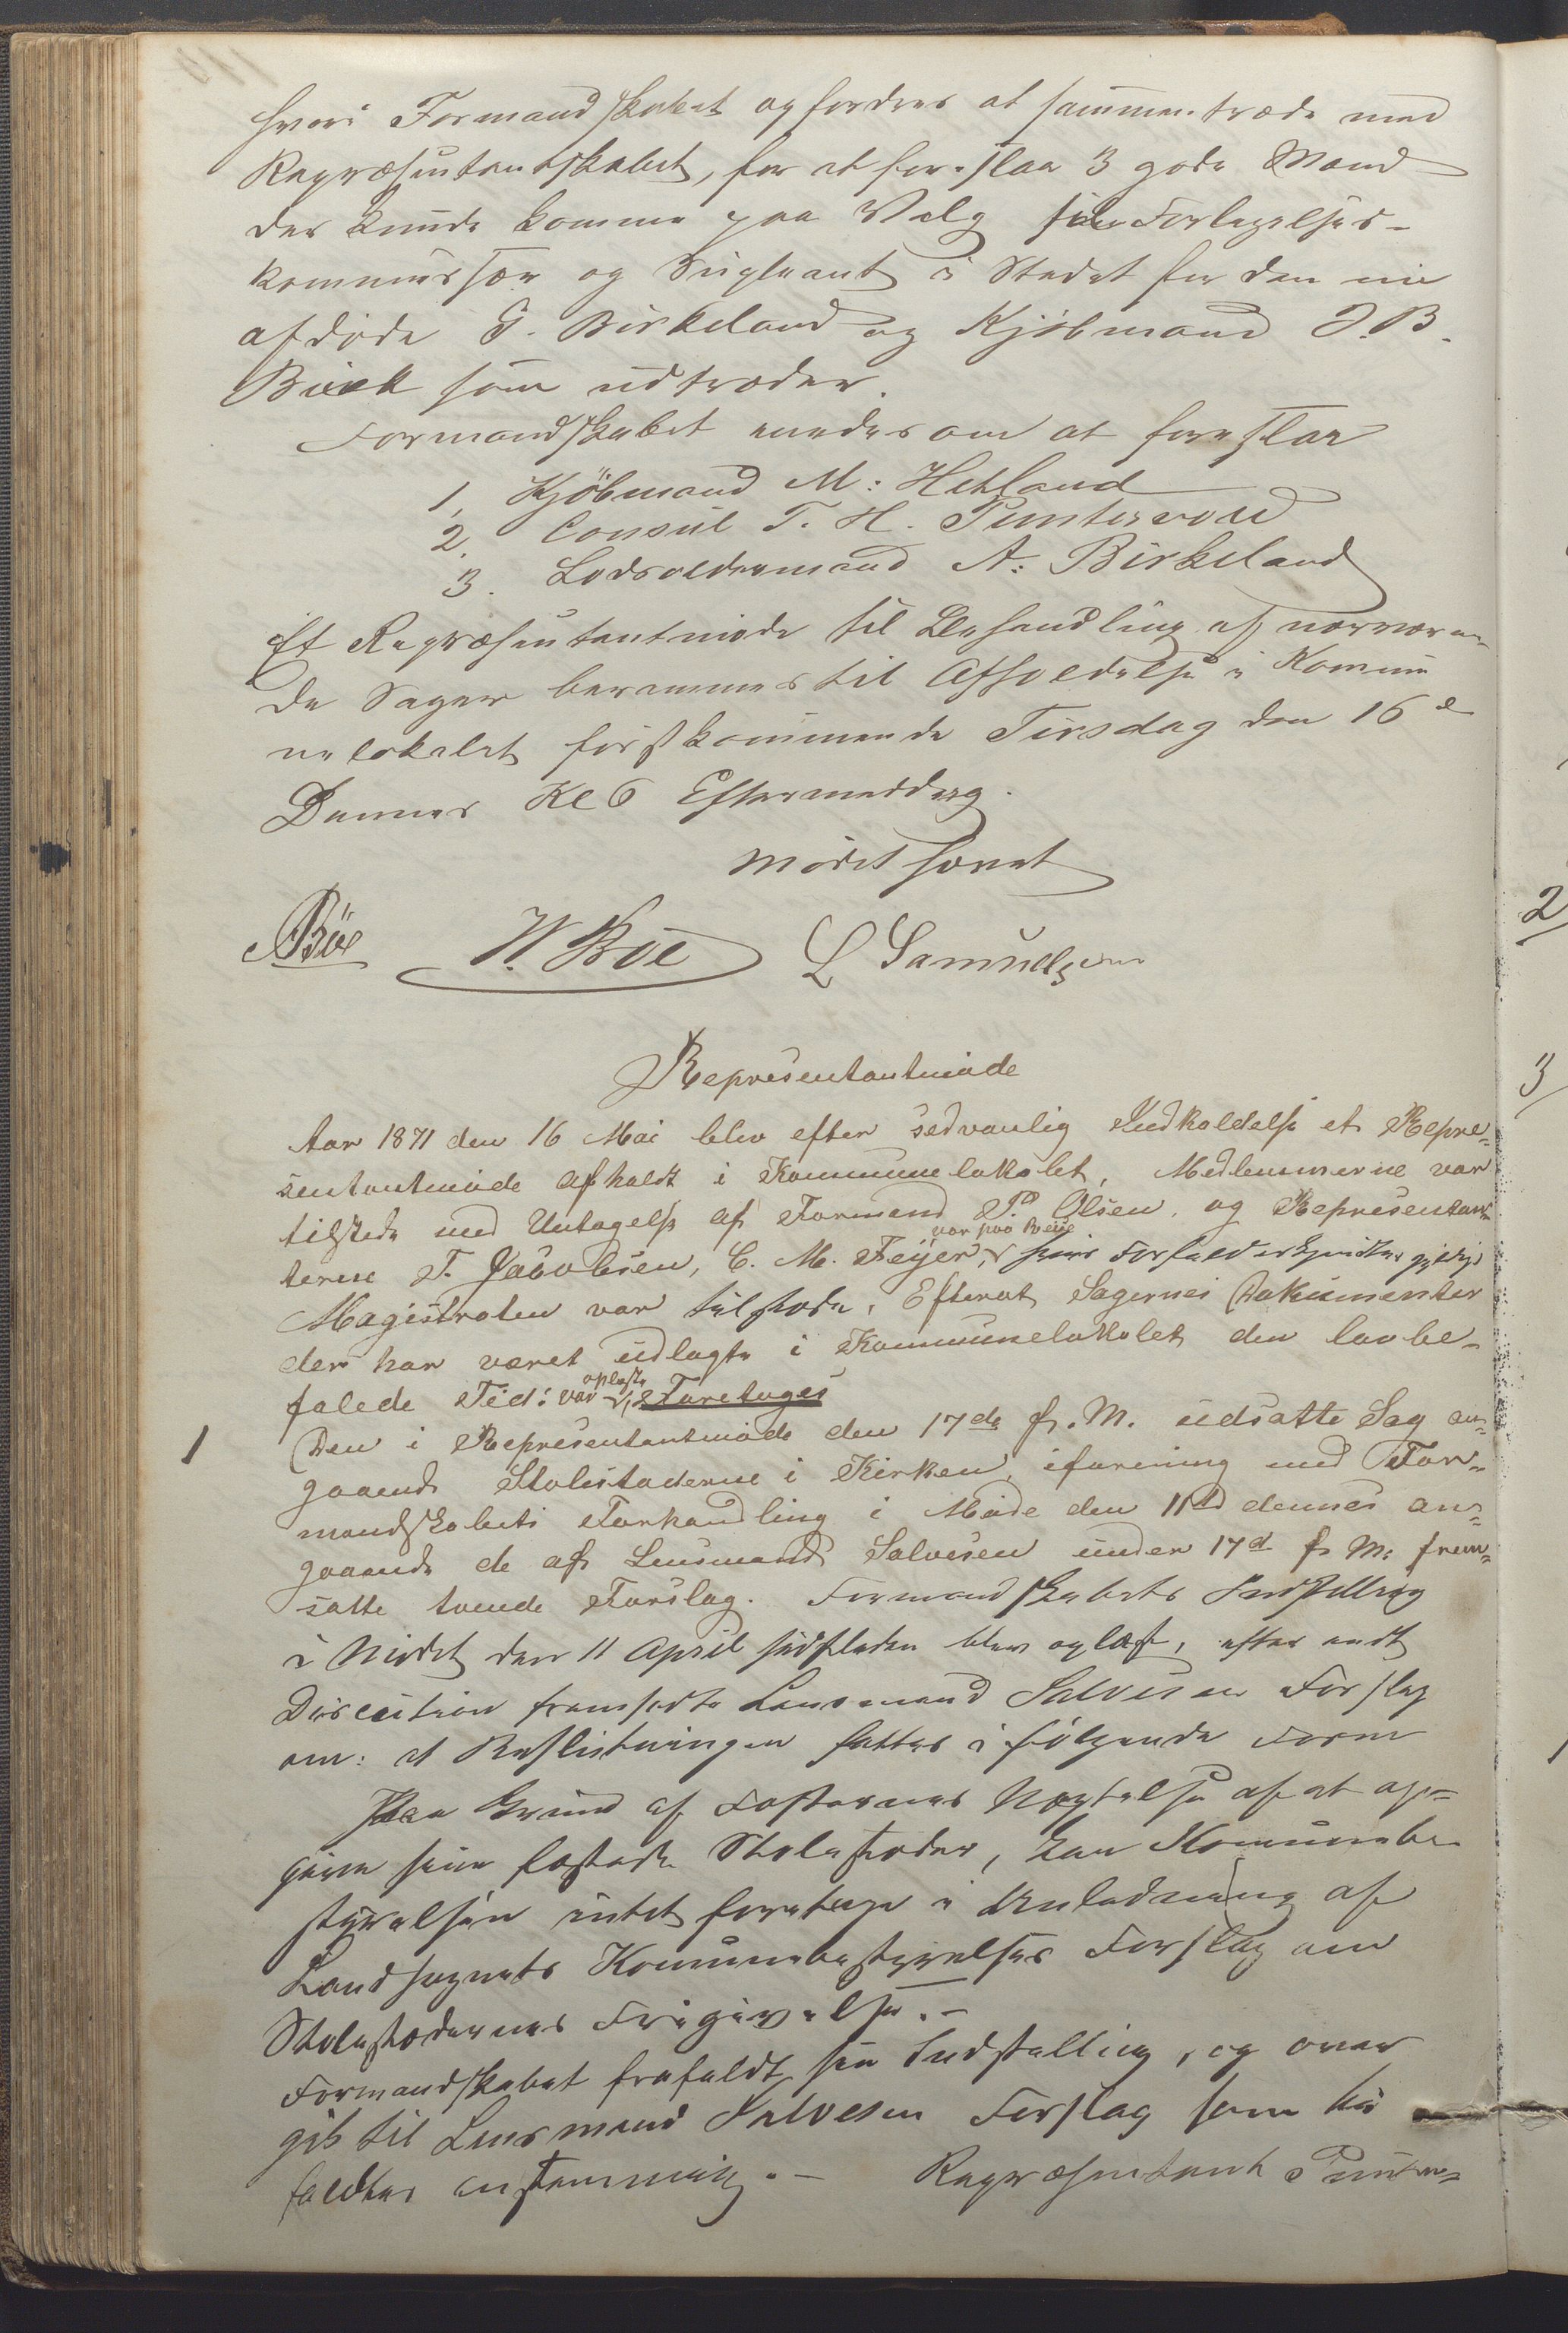 hvori Formandskabet opfordres at sammentræde med
Repræsentantskabet, for at foreslaa 3 gode Mænd
der kunde komme paa Valg til Forligelses-
kommissær og Supleant i Stedet for den nu
afdøde G. Birkeland og Kjøbmand J. B.
Büch som udtræder.
Formandskabet enedes om at foreslaa
1, Kjöbmand M: Hetland
2. Consul T. H. Puntervold
3. Lodsoldermand A: Birkeland
Et Repræsentantmøde til Behandling af nærværen-
de Sager berammes til Afholdelse i Kommu
nelokalet førstkommende Tirsdag den 16de
Dennes Kl 6 Eftermeddag.
Mødet hævet
Böe W. Böe L Samuelsen
Representantmöde
Aar 1871 den 16 Mai blev efter sedvanlig Indkaldelse et Repre-
sentantmöde afholdt i Kommunelokalet, Medlemmerne var
tilstede med Untagelse af Formand Olsen, og Representan-
var paa Reise
terne T. Jacobsen, C. M. Feÿer, hvis Forfald erkjendtes gyldigt
Magistraten var tilstede, Efterat Sagernes Dokumenter
der har været udlagte i Kommunelokalet den lovbe-
oplæste
falede Tid: var, Foretages
1 Den i Representantmöde den 17de f. M. udsatte Sag an-
gaaende Stolestaderne i Kirken, iforening med For-
mandskabets Forhandling i Möde den 11td dennes an-
gaaende de af Lensmand Salvesen under 17d f. M. frem-
satte tvende Forslag. Formandskabets Indstilling
i Mødet den 11 April sidstleden blev oplæst, efter endt
Discution fremsatte Lensmand Salvesen Forslag
om: at Beslutningen fattes i følgende Form
Paa Grund af Fæsternes Nægtelse af at op-
give sine fæstede Stolestader, kan Kommunebe-
styrelsen intet foretage i Anledning af
Landsognets Kommunebestyrelses Forslag om
Stolestadernes Frigivelse.-
Formandskabet frafaldt sin Indstilling, og over
gik til Lensmand Salvesen Forslag som bi
faldtes enstemmig.- Repræsentant Punter-
2
3